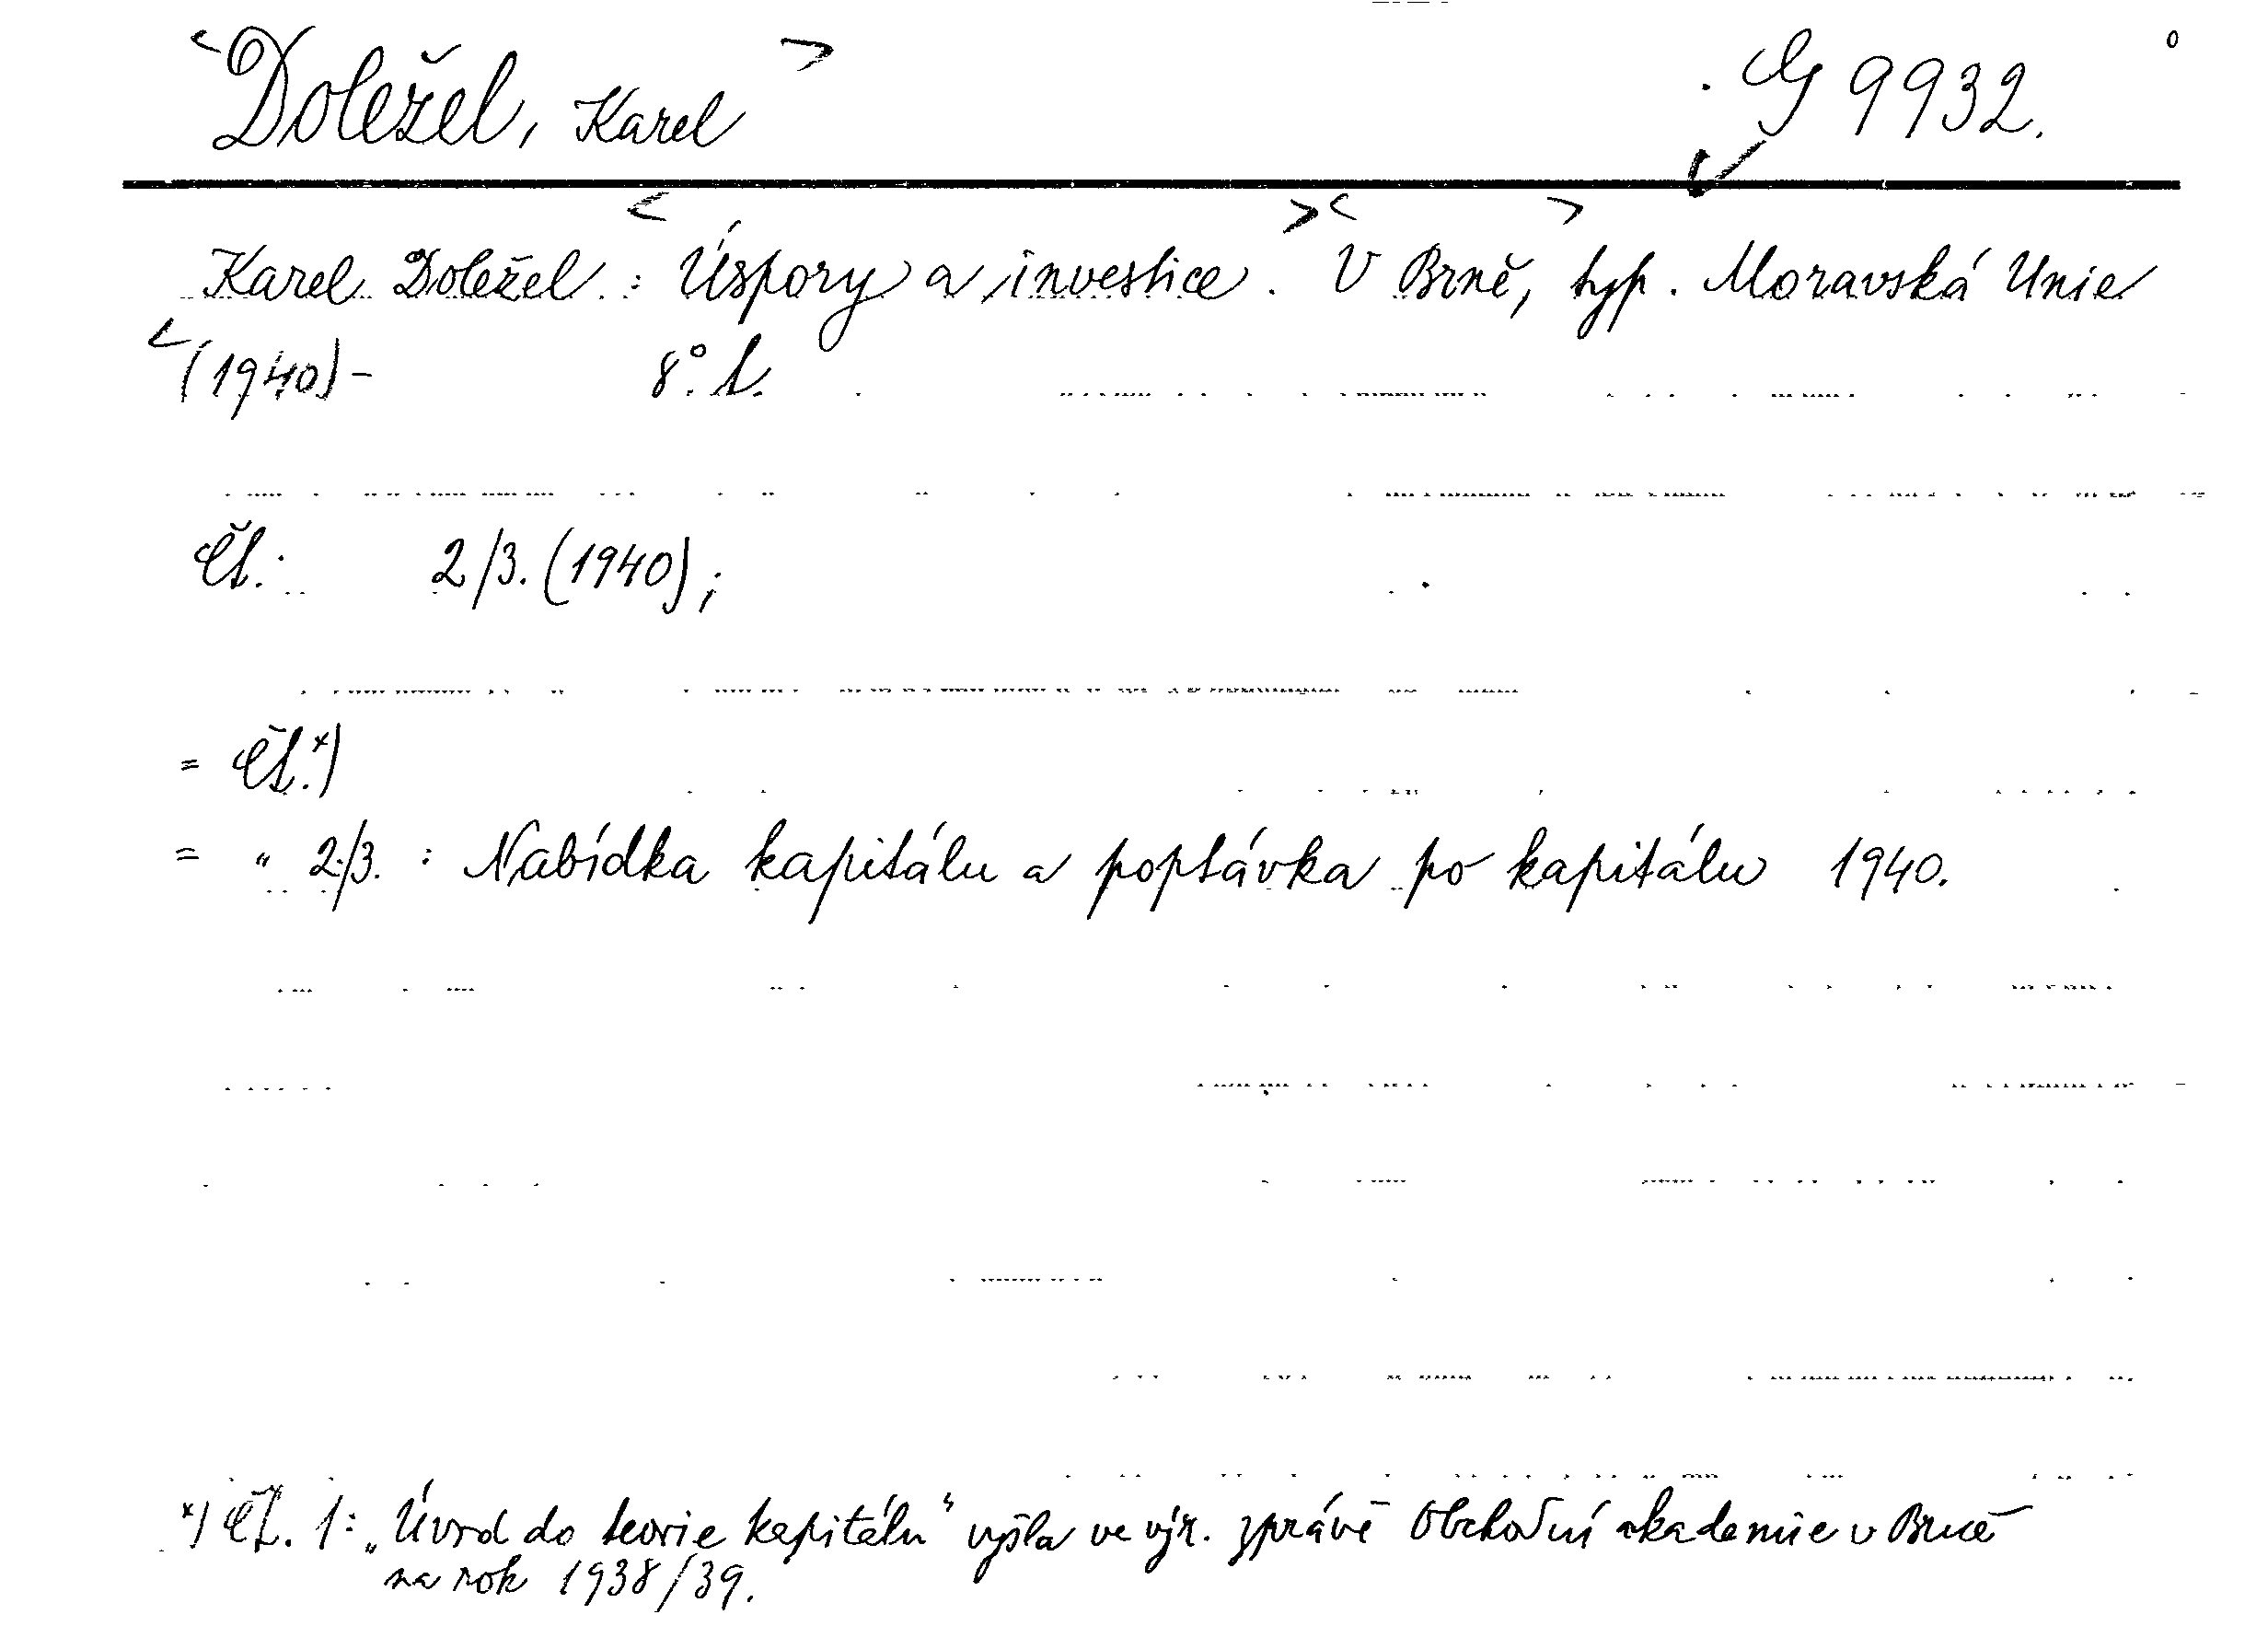 <Doležel, Karel> G 9932.
Karel Doležel: <Úspory a investice.> <V Brně,> typ. Moravská Unie
<(1940)- 8° čl.
Čl.: 2/3. (1940);
= Čl.*)
= „ 2/3. : Nabídka kapitálu a poptávka po kapitálu 1940.
*) Čl. 1: „Úvod do teorie kapitálu“ vyšla ve výr. zprávě Obchodní akademie v Brně
na rok 1938/39.